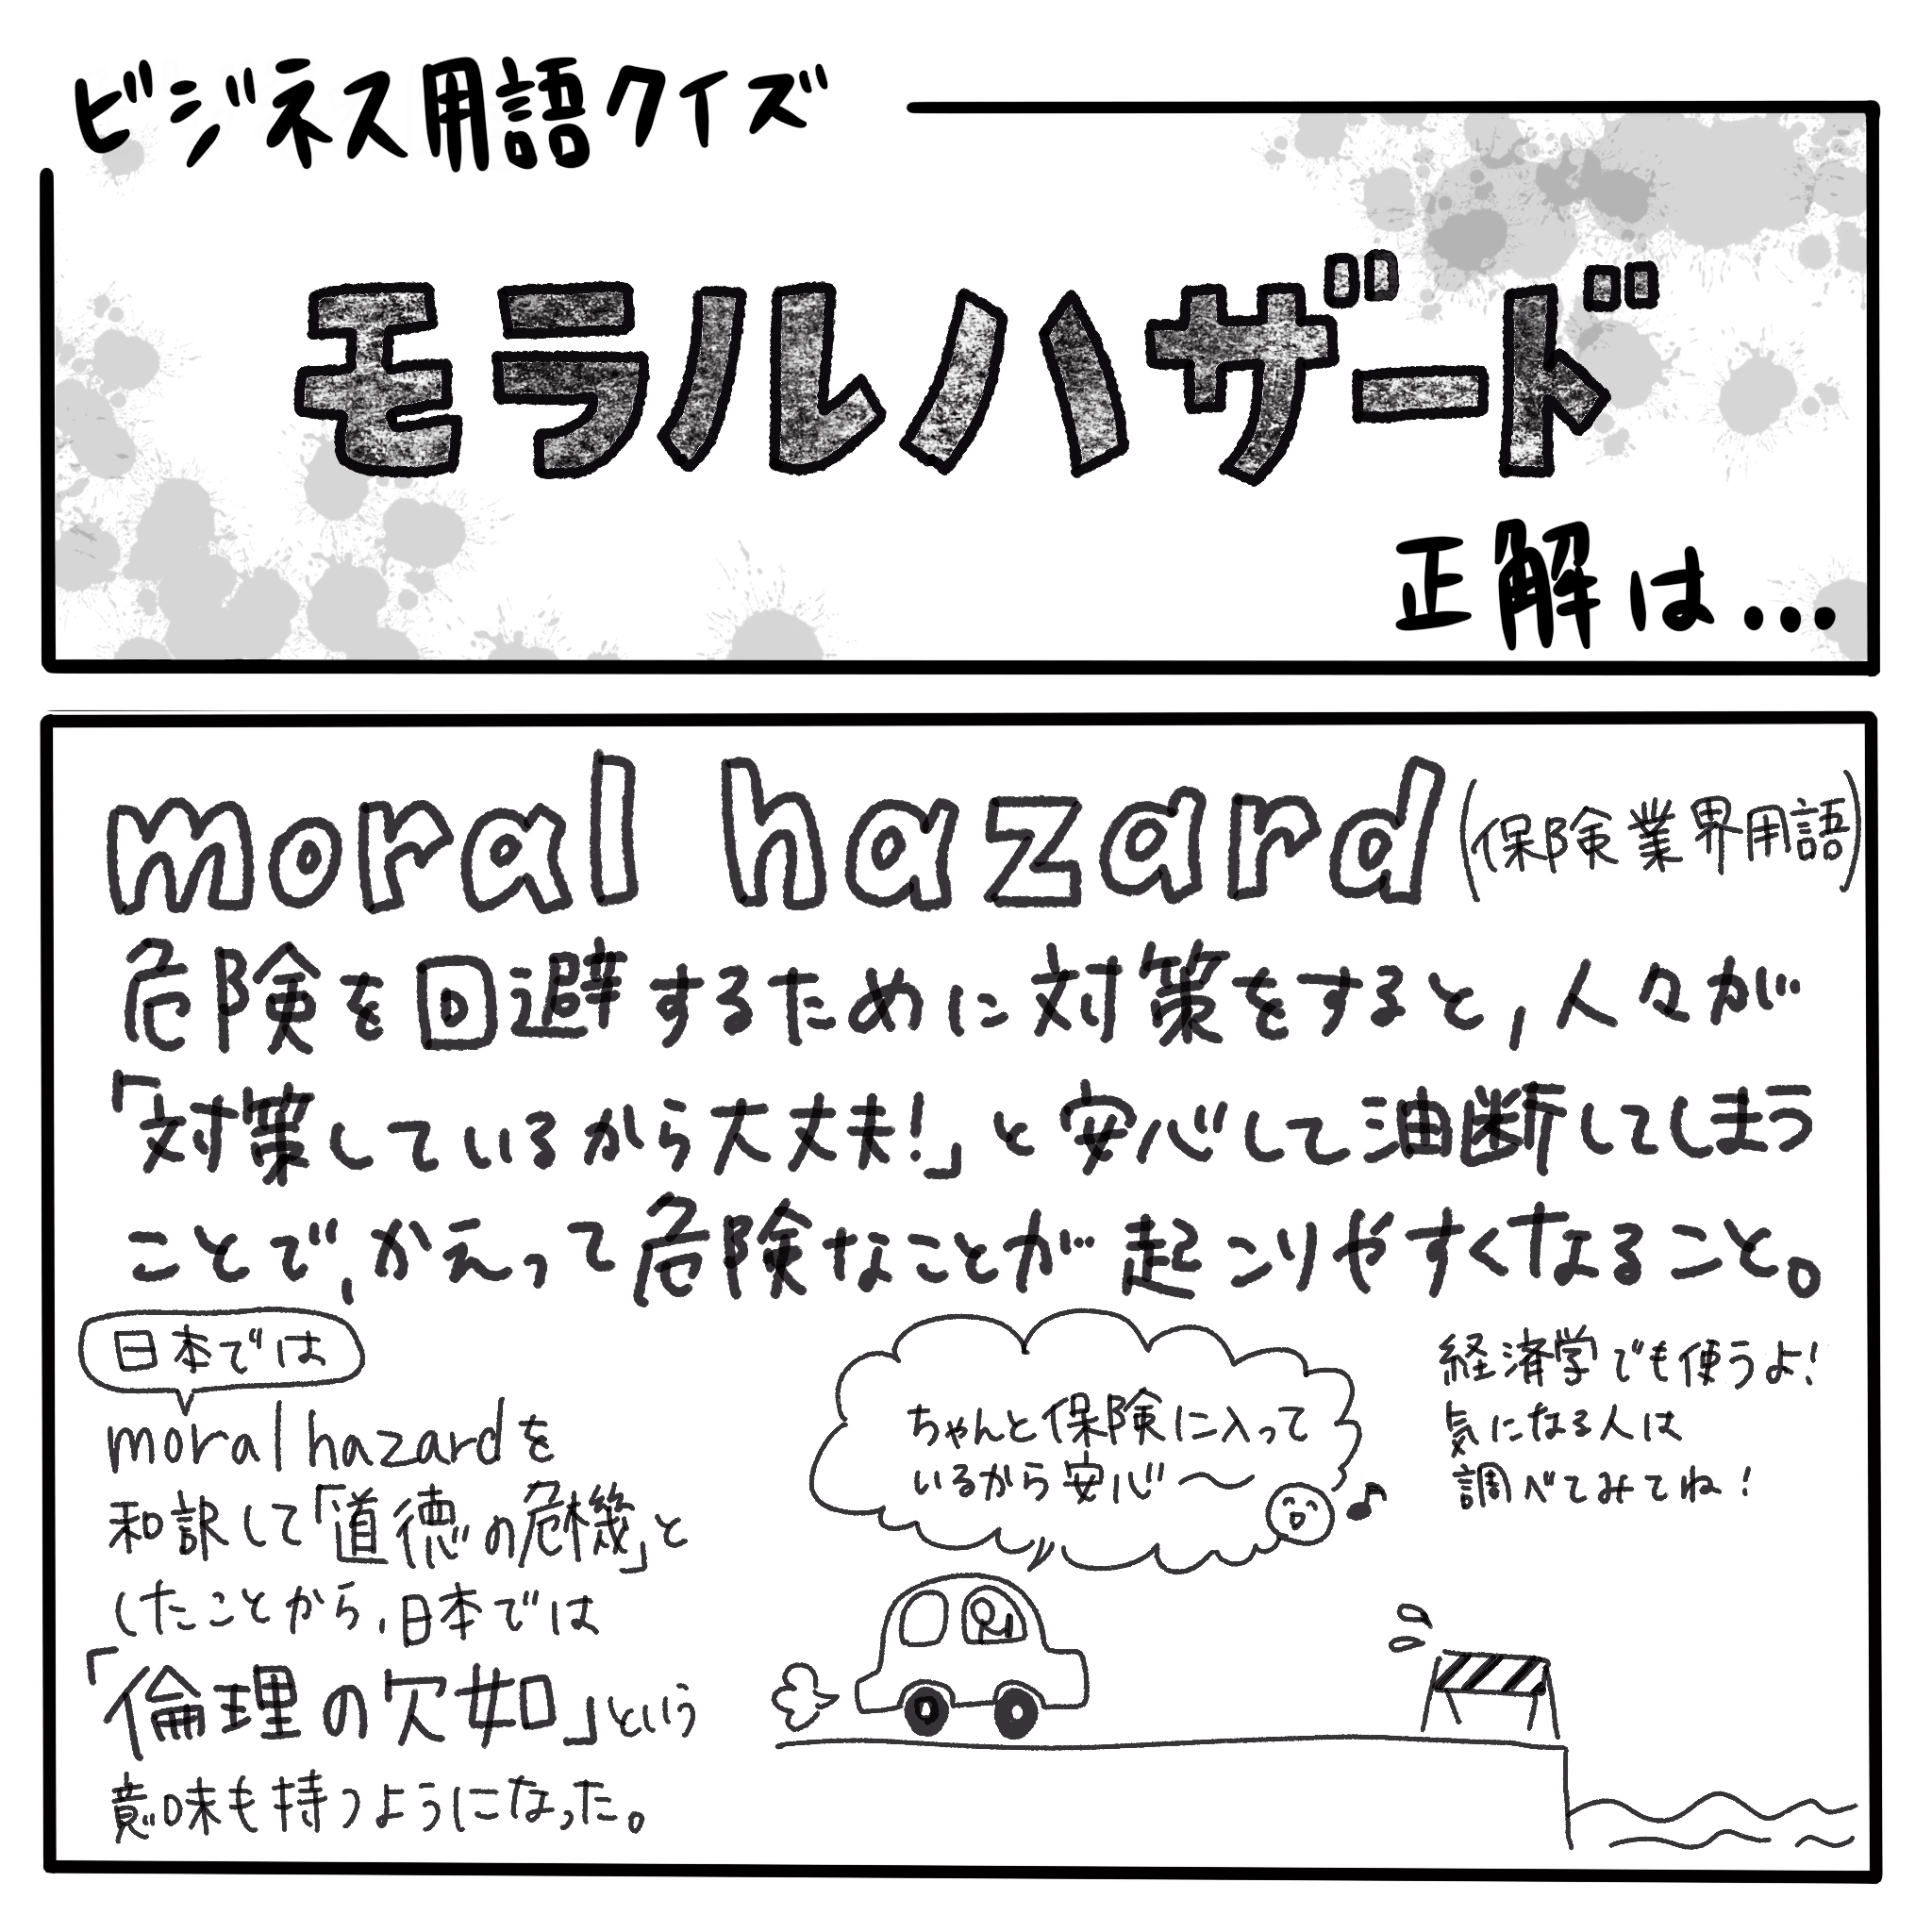 ビジネス用語クイズ
モラルハザード
正解は...
moral hazard(保険業界用語)
危険を回避するために対策をすると,人々が
「対策しているから大丈夫!」と安心して油断してしまう
ことで,かえって危険なことが起こりやすくなること。
日本では
moral hazardを
和訳して「道徳の危機」と
したことから,日本では
「倫理の欠如」という
意味も持つようになった。
ちゃんと保険に入って
いるから安心〜
経済学でも使うよ!
気になる人は
調べてみてね!